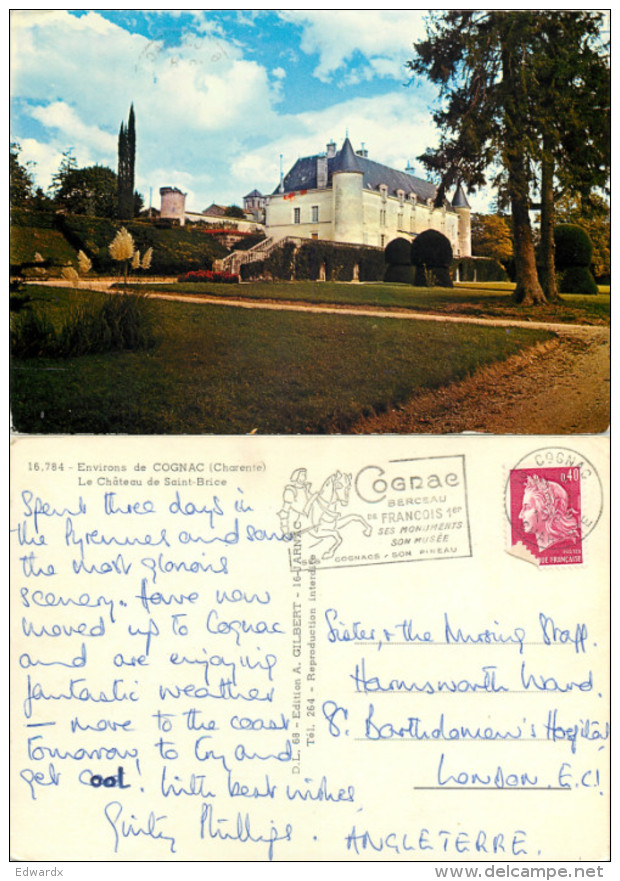 16.784 - Environs de COGNAC (Charente)
Le Château de Saint-Brice
Spent three days in
the Pyrennes and saw
the most glorious
scenery. Have now
moved up to Cognac
and are enjoying
fantastic weather
— move to the coast
tomorrow, to try and
get cool! With best wishes
Phillips.
D.L. 68 - Edition A. GILBERT - 16-JARNAC
Tél. 264 - Reproduction interdite
COGNAC
BERCEAU
DE FRANCOIS 1er
SES MONUMENTS
SON MUSÉE
COGNACS - SON PINEAU
COGNAC
0,40
FRANÇAISE
Sister, & the Nursing Staff.
Harmsworth Ward.
St. Bartholomew's Hospital
LONDON. E.C.1
ANGLETERRE.
Edwardx
www.delcampe.net